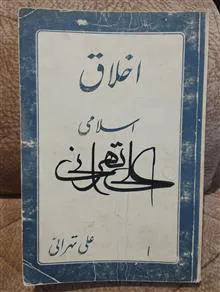 اخلاق
اسلامی
علی تهرانی
علی تهرانی
۱